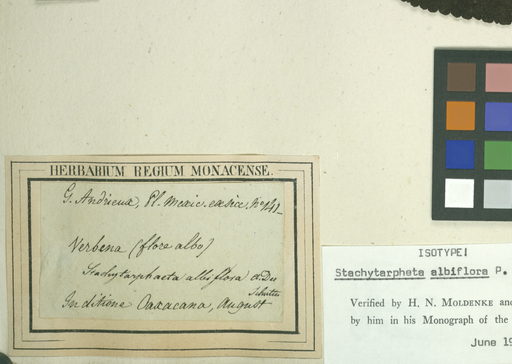 HERBARIUM REGIUM MONACENSE.
G. Andrieux, Pl. mexic. exsicc. No 141
Verbena (flore albo)
Stachytarphaeta albiflora
In ditione Oaxacana, August
ISOTYPE!
Stachytarpheta albiflora P.
Verified by H. N. MOLDENKE and
by him in his Monograph of the
June 19